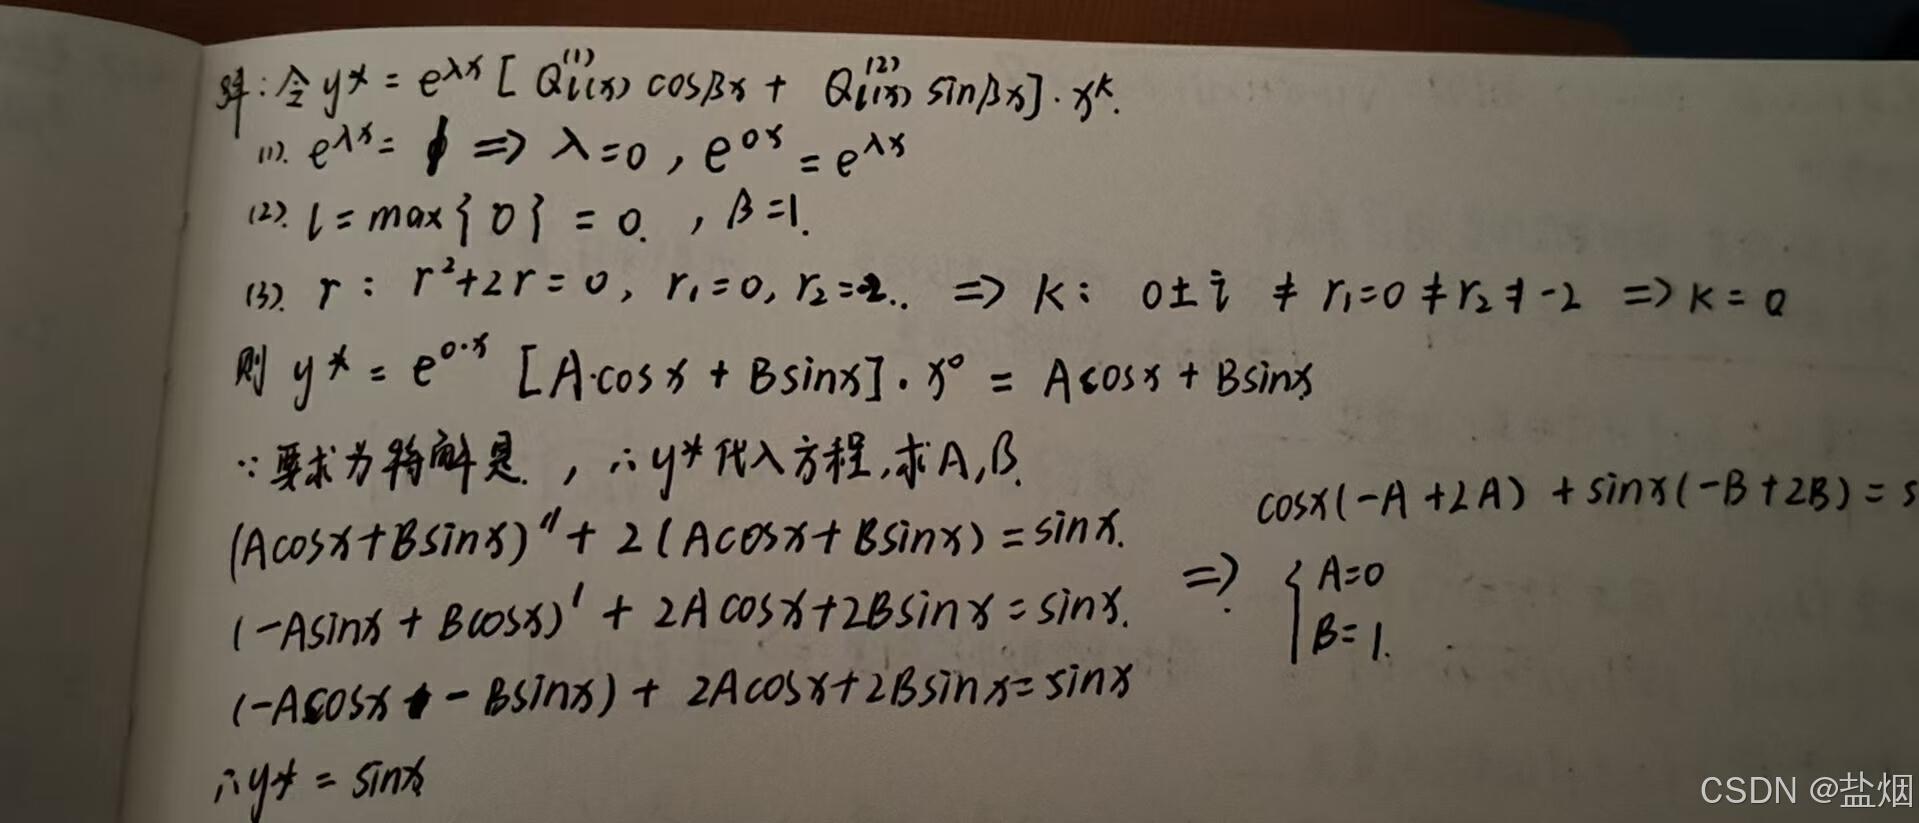 解:令 y* = e^{λx} [ Q_{l(x)}^{(1)} cosβx + Q_{l(x)}^{(2)} sinβx ]·x^k.
(1). e^{λx} = ⇒ λ=0 , e^{0x} = e^{λx}
(2). l = max{0} = 0. , β=1.
(3). r : r²+2r=0, r₁=0, r₂=-2. ⇒ k: 0±i ≠ r₁=0 ≠ r₂≠-2 ⇒ k=0
则 y* = e^{0·x} [A·cosx + Bsinx]·x⁰ = Acosx + Bsinx
∵要求为特解是. , ∴y*代入方程,求A,B.
(Acosx+Bsinx)'' + 2(Acosx+Bsinx)=sinx.
(-Asinx + Bcosx)' + 2Acosx+2Bsinx=sinx.
(-Acosx - Bsinx) + 2Acosx+2Bsinx=sinx
cosx(-A+2A) + sinx(-B+2B) = s
⇒ { A=0
B=1.
∴y* = sinx
CSDN @盐烟